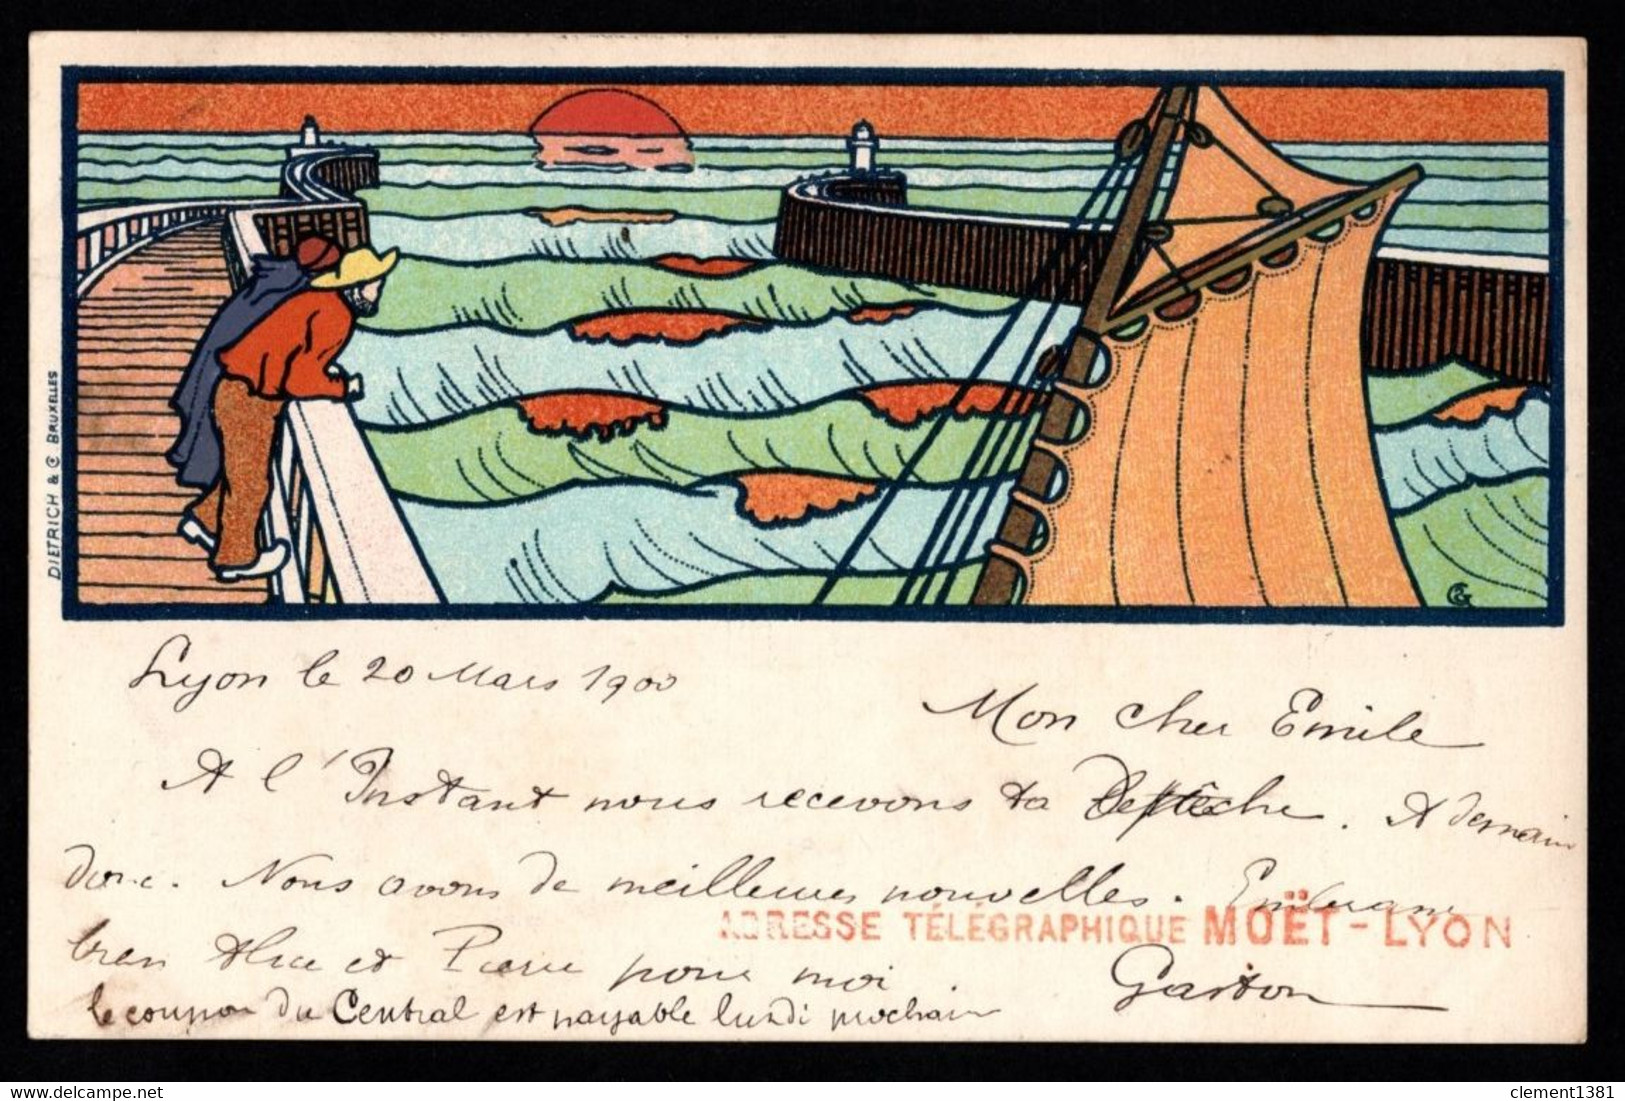 DIETRICH & Co BRUXELLES
CG
Lyon le 20 Mars 1900
Mon cher Emile
A l'Instant nous recevons ta Dépêche. A demain
donc. Nous avons de meilleures nouvelles. Embrasse
ADRESSE TÉLÉGRAPHIQUE MOËT-LYON
bien Alice et Pierre pour moi
Gaston
le coupon du Central est payable lundi prochain
clement1381